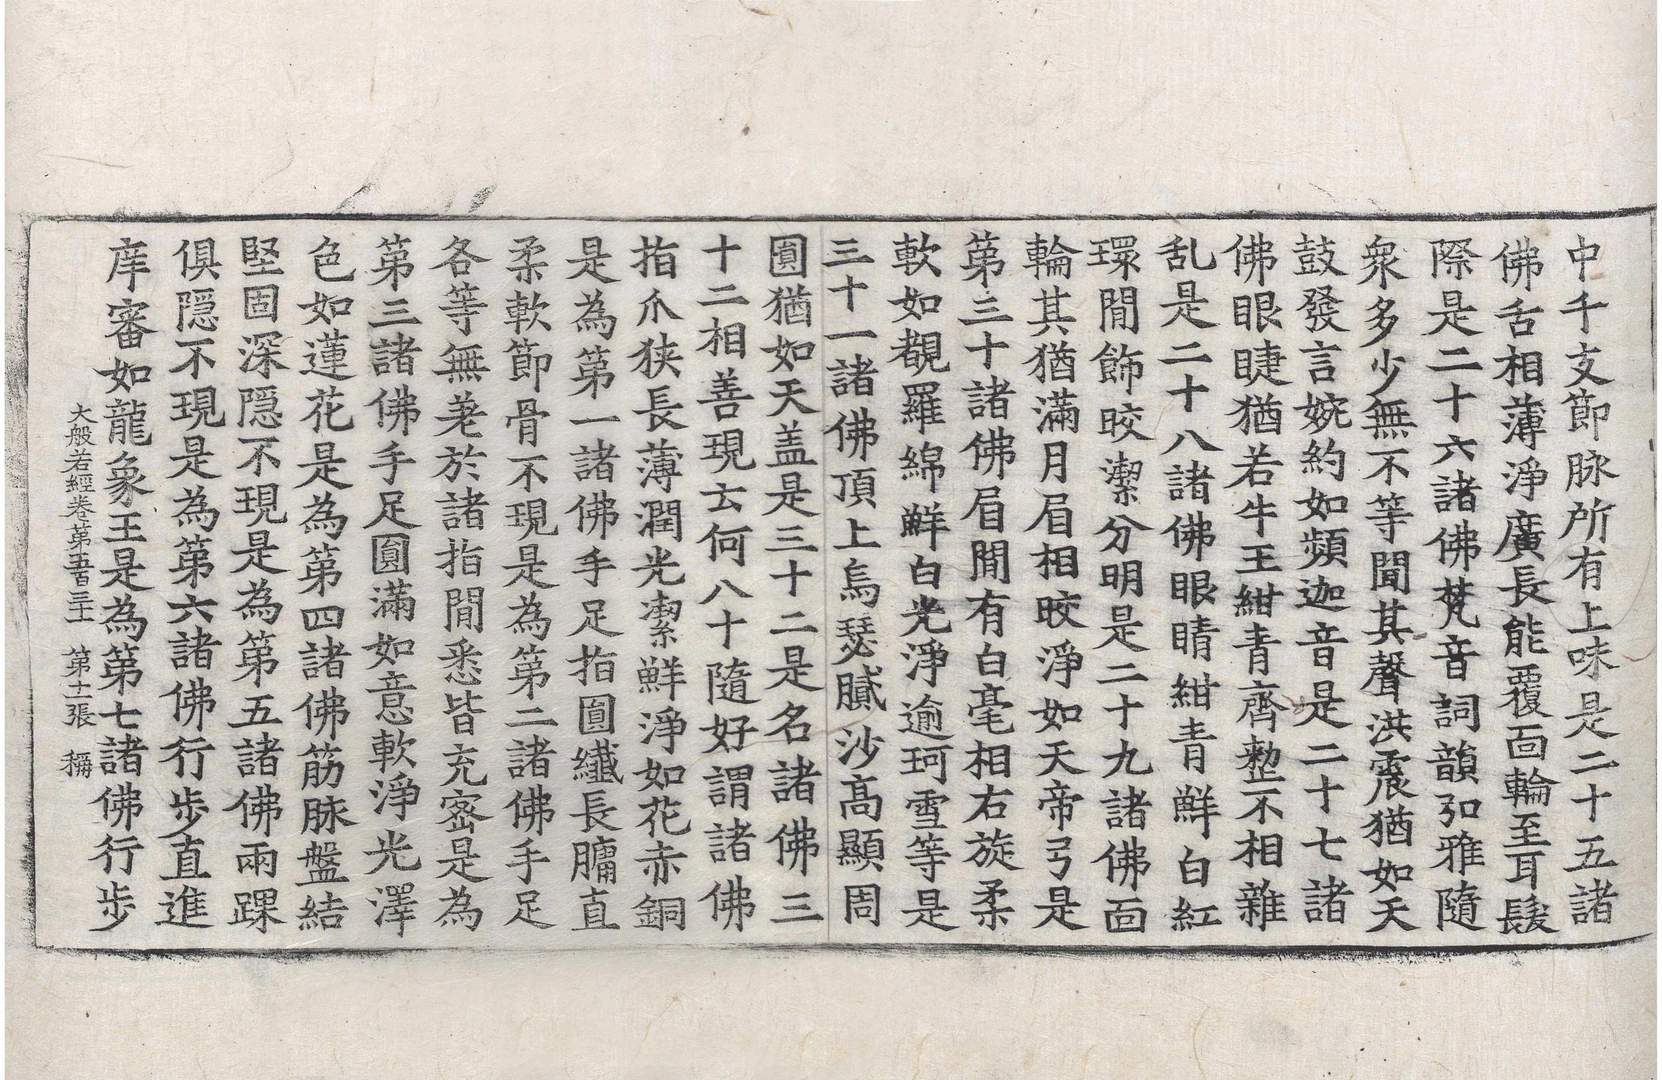 中千支節脉所有上味是二十五諸
佛舌相薄淨廣長能覆面輪至耳髮
際是二十六諸佛梵音詞韻弘雅隨
衆多少無不等聞其聲洪震猶如天
鼓發言婉約如頻迦音是二十七諸
佛眼睫猶若牛王紺青齊整不相雜
乱是二十八諸佛眼睛紺青鮮白紅
環閒飾皎潔分明是二十九諸佛面
輪其猶滿月眉相皎淨如天帝弓是
第三十諸佛眉閒有白毫相右旋柔
軟如覩羅綿鮮白光淨逾珂雪等是
三十一諸佛頂上烏瑟膩沙髙顯周
圓猶如天盖是三十二是名諸佛三
十二相善現云何八十隨好謂諸佛
指爪狹長薄潤光潔鮮淨如花赤銅
是為第一諸佛手足指圓纖長𦟛直
柔軟節骨不現是為第二諸佛手足
各等無差於諸指閒悉皆充密是為
第三諸佛手足圓滿如意軟淨光澤
色如蓮花是為第四諸佛筋脉盤結
堅固深隱不現是為第五諸佛兩踝
俱隱不現是為第六諸佛行步直進
庠審如龍象王是為第七諸佛行步
大般若經卷第五百三十一 第十張 稱